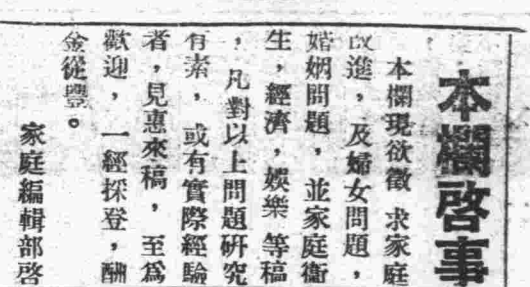 本欄啓事
本欄現欲徵 求家庭
改進，及婦女問題，
婚姻問題，並家庭衛
生，經濟，娛樂 等稿
，凡對以上問題研究
有素， 或有實際經驗
者，見惠來稿， 至爲
歡迎， 一經採登，酬
金從豐。
家庭編輯部啓